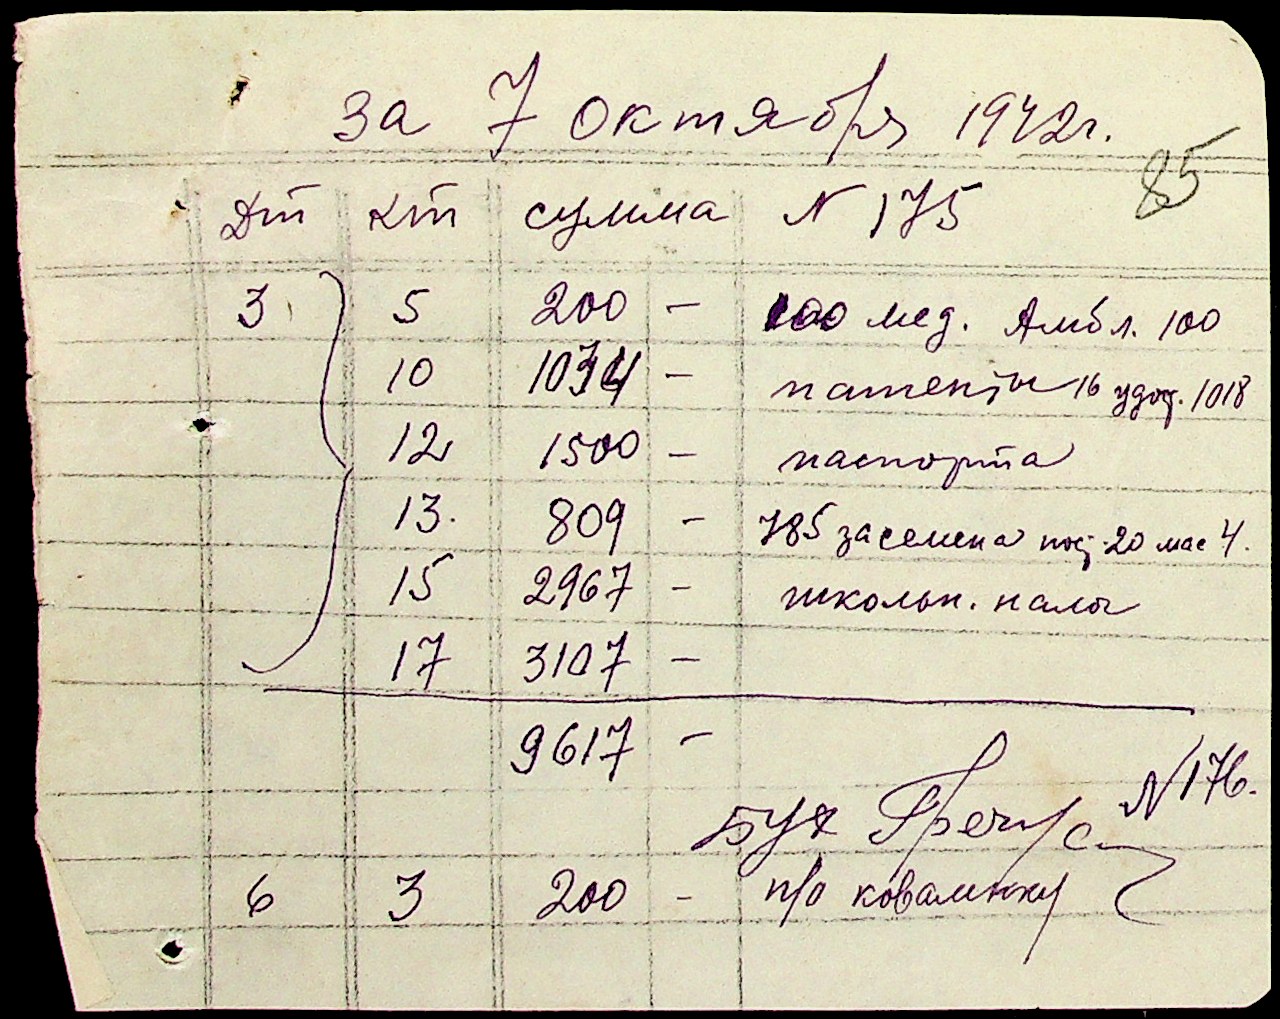 за 7 октября 1942г.
85
Дт Кт сумма N 175
3 5 200 - 100 мед. Амбл. 100
10 1034 - патенты 16 удост. 1018
12 1500 - паспорта
13. 809 - 785 за семена 20 мас 4.
15 2967 - школьн. налог
17 3107 -
9617 -
N 176.
Бух
6 3 200 - п/о коваленку